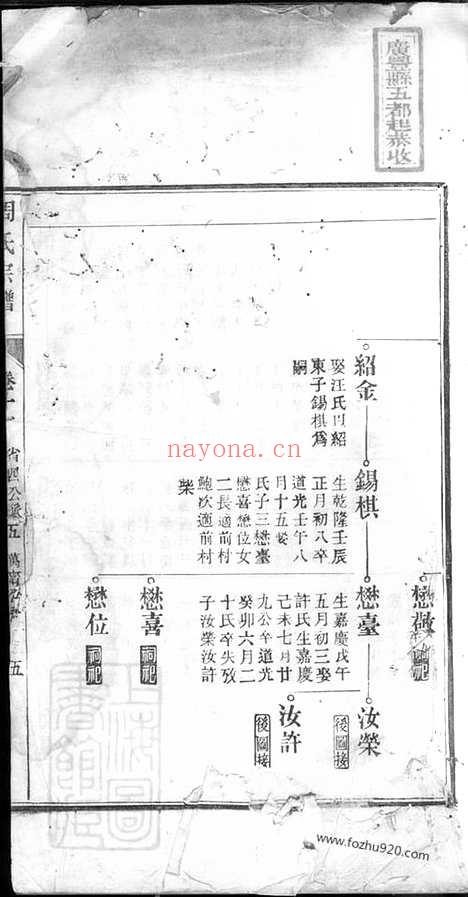 廣豐縣五都起恭收
懋
紹金
娶汪氏以紹
東子錫棋爲
嗣
錫棋
生乾隆壬辰
正月初八卒
道光壬午八
月十五娶
氏子三懋臺
懋喜懋位女
二長適前村
鮑次適前村
柴
懋臺
生嘉慶戊午
五月初三娶
許氏生嘉慶
己未七月廿
九公卒道光
癸卯六月二
十氏卒失攷
子汝榮汝許
汝榮
後圖接
汝許
後圖接
懋喜
祠祀
懋位
祠祀
周氏宗譜
卷十一
五
nayona.cn
www.fozhu920.com